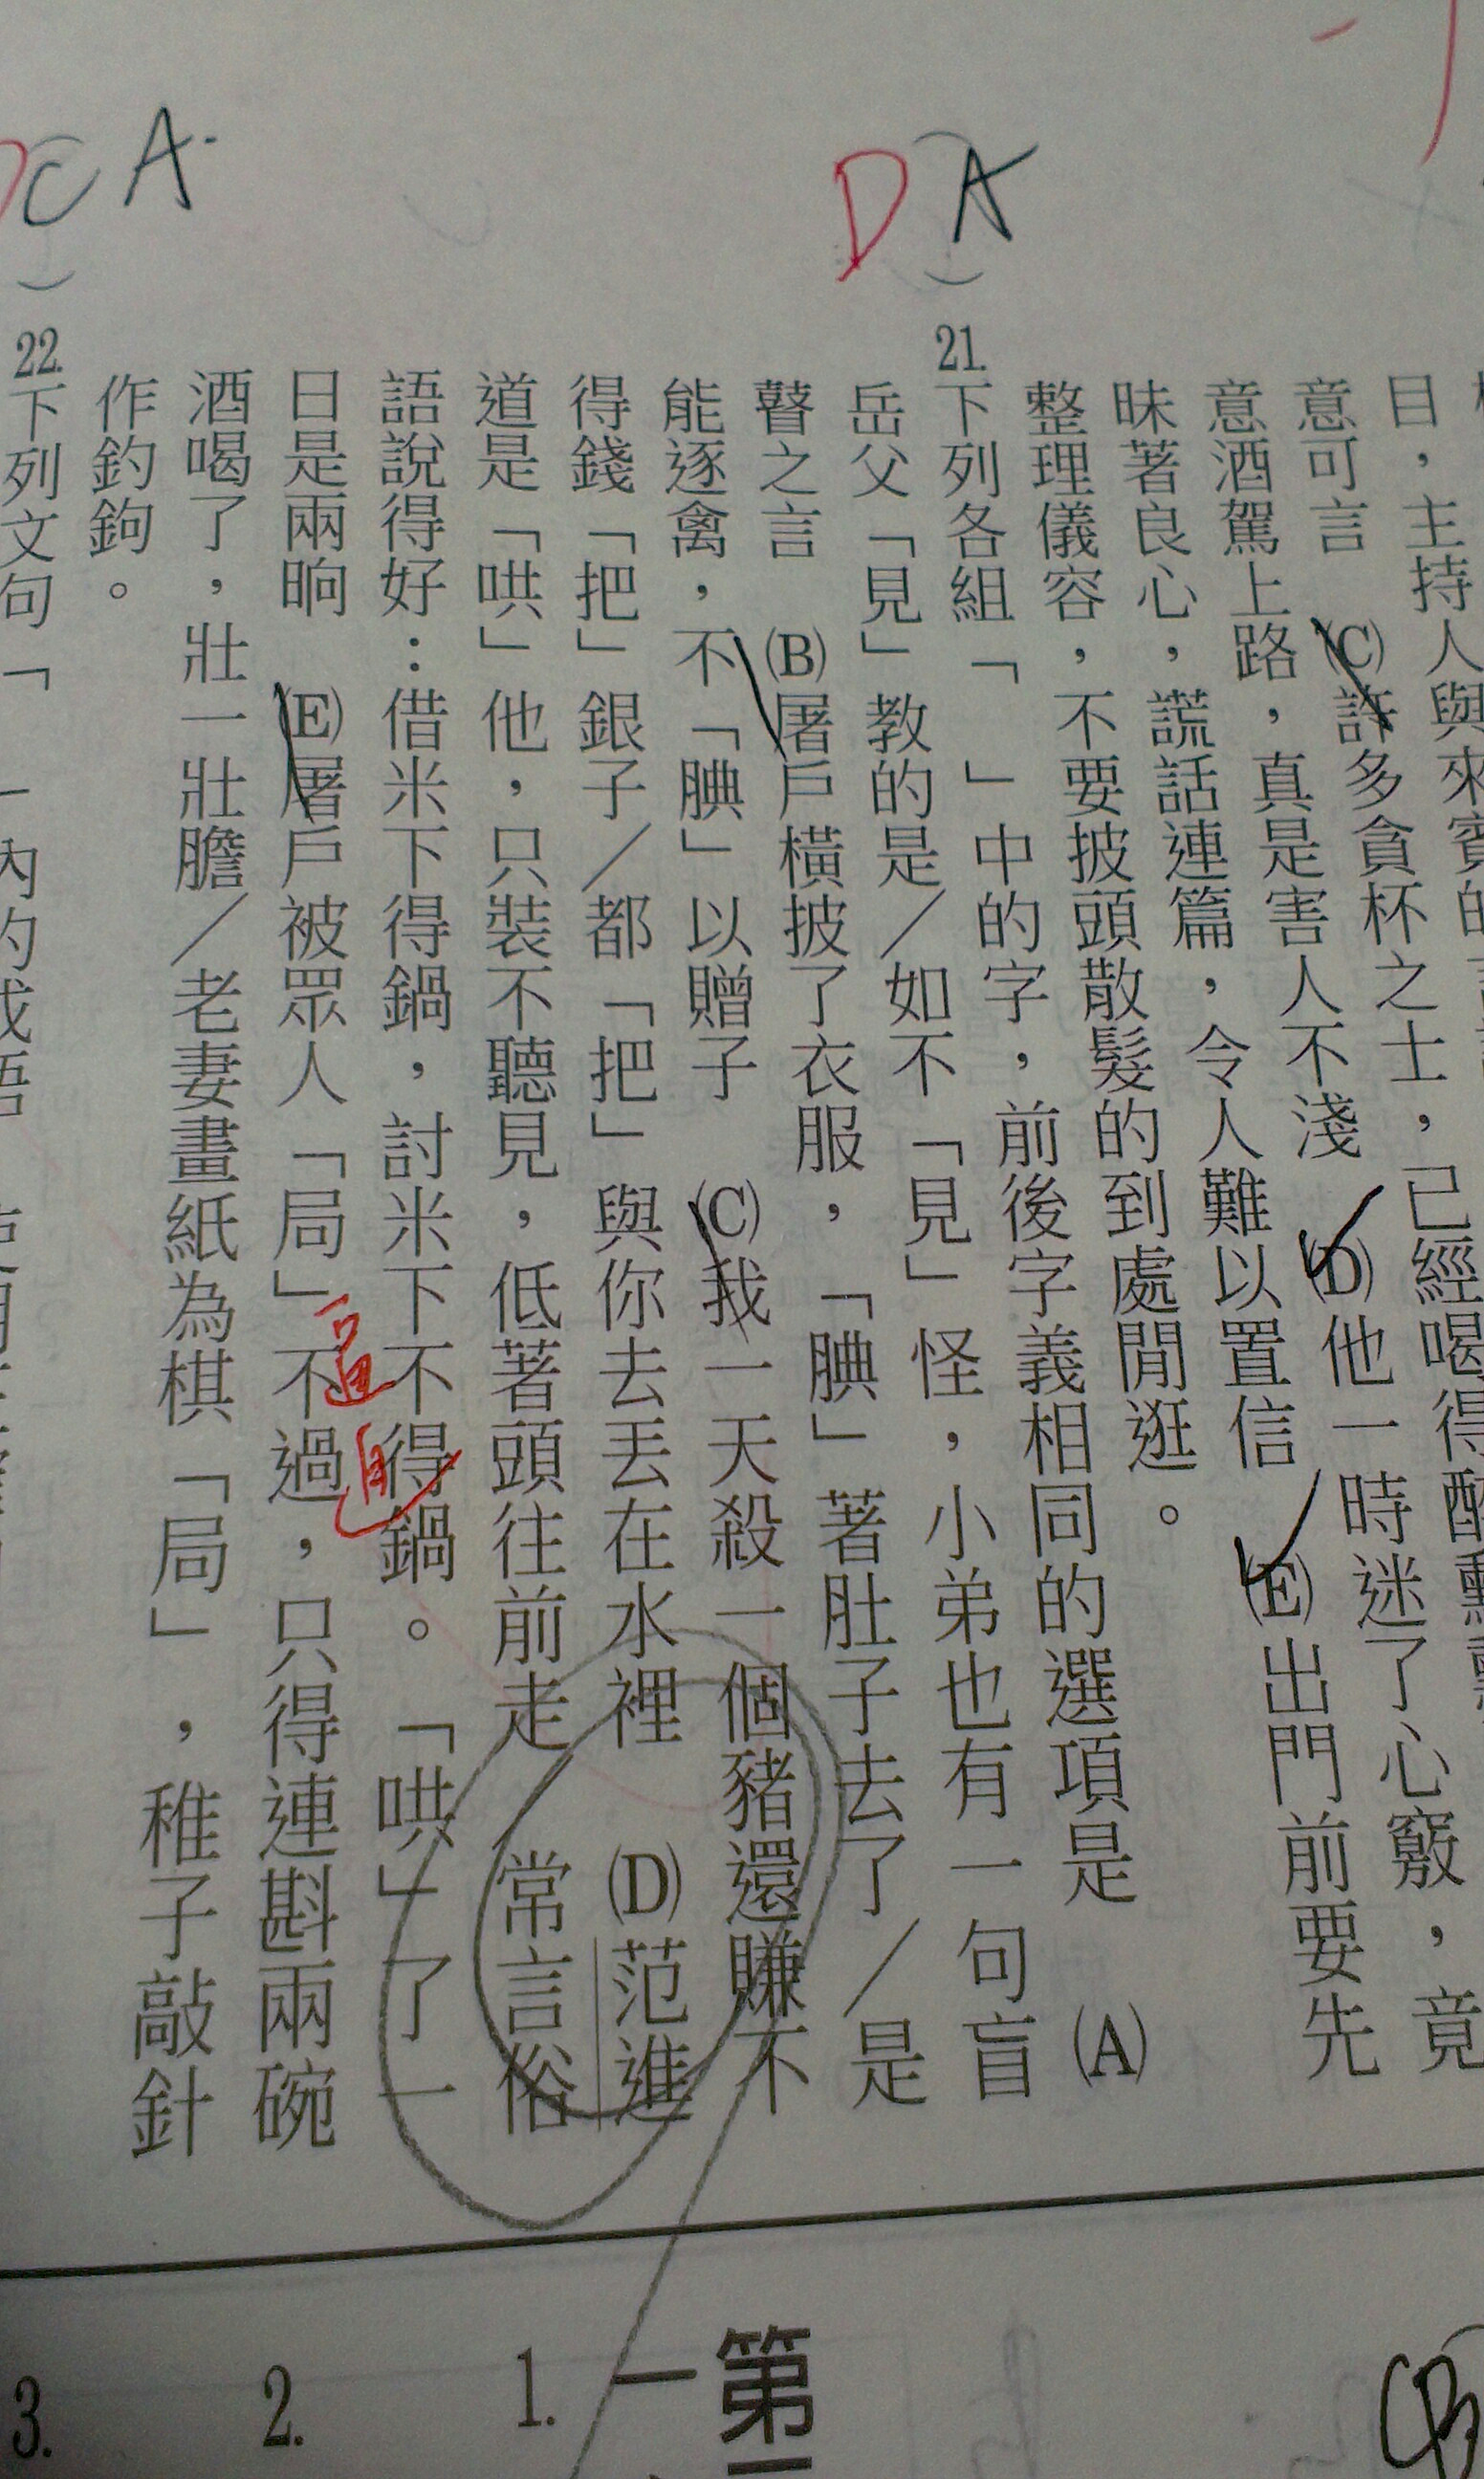 目，主持人與來賓的
意可言　(C)許多貪杯之士，已經喝得醉
意酒駕上路，真是害人不淺　(D)他一時迷了心竅，竟
昧著良心，謊話連篇，令人難以置信　(E)出門前要先
整理儀容，不要披頭散髮的到處閒逛。
DA
）21.下列各組「　」中的字，前後字義相同的選項是　(A)
岳父「見」教的是／如不「見」怪，小弟也有一句盲
瞽之言　(B)屠戶橫披了衣服，「腆」著肚子去了／是
能逐禽，不「腆」以贈子　(C)我一天殺一個豬還賺不
得錢「把」銀子／都「把」與你去丟在水裡　(D)范進
道是「哄」他，只裝不聽見，低著頭往前走　常言俗
語說得好：借米下得鍋，討米下不得鍋。「哄」了一
日是兩晌　(E)屠戶被眾人「局」不過，只得連斟兩碗
酒喝了，壯一壯膽／老妻畫紙為棋「局」，稚子敲針
作釣鉤。
CA
）22.下列文句「
第一
1.
2.
3.